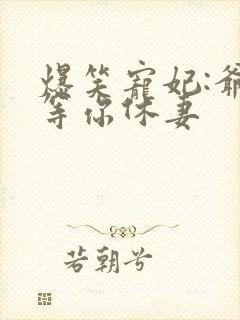 爆笑寵妃:爺
等你休妻
若朝兮